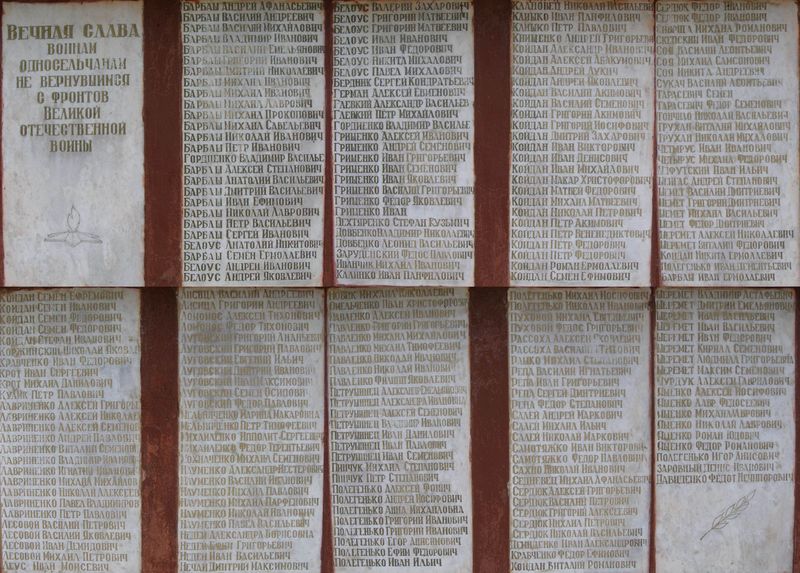 Вечная слава
воинам
односельчанам
не вернувшимся
с фронтов
Великой
отечественной
войны
Барбаы Андрей Афанасьевич
Барбаы Василий Андреевич
Барбаы Василий Михайлович
Барбаы Владимир Иванович
Барбаы Василий Емельянович
Барбаы Григорий Иванович
Барбаы Дмитрий Николаевич
Барбаы Михаил Иванович
Барбаы Михаил Иванович
Барбаы Михаил Лаврович
Барбаы Михаил Прокопович
Барбаы Михаил Савельевич
Барбаы Николай Иванович
Барбаы Петр Иванович
Гордиенко Владимир Василье
Барбаы Алексей Степанович
Барбаы Анатолий Васильевич
Барбаы Дмитрий Васильевич
Барбаы Иван Ефимович
Барбаы Николай Лаврович
Барбаы Петр Васильевич
Барбаы Сергей Иванович
Белоус Анатолий Никитович
Барбаы Семен Ермолаевич
Белоус Андрей Иванович
Белоус Андрей Яковлевич
Белоус Валерий Захарович
Белоус Григорий Матвеевич
Белоус Григорий Матвеевич
Белоус Иван Иванович
Белоус Иван Федорович
Белоус Никита Михайлович
Белоус Павел Михайлович
Бердник Сергей Кондратьевич
Герман Алексей Евменович
Гаевский Александр Василье
Гаевкий Петр Михайлович
Гордиенко Владимир Василье
Гриценко Алексей Иванович
Гриценко Андрей Семенович
Гриценко Иван Григорьевич
Гриценко Иван Семенович
Гриценко Иван Яковлевич
Гриценко Василий Григорьевич
Гриценко Федор Яковлевич
Гриценко Иван
Дехтяренко Стефан Кузьмич
Довбенко Владимир Николаевич
Довбенко Леонид Васильевич
Заруденский Федос Павлович
Иванчик Михаил Иванович
Калашко Иван Панфилович
Калиновец Николай Васильевич
Клицко Иван Панфилович
Клицко Петр Павлович
Клименко Андрей Григорьевич
Койдан Александр Иванович
Койдан Алексей Абакумович
Койдан Андрей Лукич
Койдан Андрей Яковлевич
Койдан Василий Акимович
Койдан Василий Семенович
Койдан Григорий Акимович
Койдан Григорий Иосифович
Койдан Дмитрий Захарович
Койдан Иван Викторович
Койдан Иван Денисович
Койдан Иван Михайлович
Койдан Макар Христофорович
Койдан Матвей Федорович
Койдан Михаил Матвеевич
Койдан Николай Петрович
Койдан Петр Акимович
Койдан Петр Венедиктович
Койдан Петр Федорович
Койдан Петр Федорович
Койдан Роман Ермолаевич
Койдан Семен Ефимович
Сердюк Федор Иванович
Сердюк Федор Иванович
Михаил Романович
Федор Иванович
Соя Василий Леонтьевич
Соя Михаил Самсонович
Соя Никита Андреевич
Сукач Василий Леонтьевич
Тарасевич Семен
Тарасевич Федор Семенович
Тончило Николай Васильевич
Трухан Виталий Михайлович
Трухан Николай Михайлович
Четырус Иван Иванович
Четырус Михаил Федорович
Иван Ильич
Андрей Степанович
Шемет Василий Дмитриевич
Шемет Григорий Дмитриевич
Шемет Михаил Васильевич
Шемет Федор Дмитриевич
Шеремет Алексей Николаевич
Шеремет Виталий Федорович
Койдан Никита Ермолаевич
Полегенько Иван Дементьевич
Барбаы Семен Ермолаевич
Койдан Семен Ефремович
Койдан Сергей Иванович
Койдан Семен Федорович
Койдан Семен Федорович
Койдан Стефан Иванович
Коржинский Николай Яковл
Кравченко Иван Федорович
Крот Иван Сергеевич
Крот Михаил Данилович
Кулик Петр Павлович
Лавриненко Алексей Григорь
Лавриненко Алексей Николаев
Лавриненко Алексей Семенов
Лавриненко Андрей Павлович
Лавриненко Виталий Семенов
Лавриненко Владимир Иванов
Лавриненко Игнатий Иванович
Лавриненко Михаил Михайлов
Лавриненко Николай Алексеев
Лавриненко Павел Владимиров
Лавриненко Петр Павлович
Лесовой Василий Петрович
Лесовой Василий Яковлевич
Лесовой Иван Демидович
Лесовой Михаил Петрович
Леус Иван Моисеевич
Лисица Василий Андреевич
Лисица Григорий Андреевич
Ломонос Алексей Тихонович
Ломонос Федор Тихонович
Луговский Григорий Ананьевич
Луговский Григорий Павлович
Луговский Евгений Ильич
Луговский Иван Максимович
Луговский Семен Осипович
Луговский Федор Павлович
Мельниченко Марина Макаровна
Мельниченко Петр Тимофеевич
Михайленко Ипполит Сергеевич
Михайленко Федор Терентьевич
Михайленко Михаил Семенович
Науменко Александр Нестерович
Науменко Василий Иванович
Науменко Михаил Павлович
Науменко Михаил Парфенович
Науменко Николай Иванович
Науменко Павел Васильевич
Нецей Александра Борисовна
Нецей Ефим Григорьевич
Нецей Иван Васильевич
Нецай Дмитрий Максимович
Новик Михаил Николаевич
Омельченко Иван Христофорович
Павленко Алексей Иванович
Павленко Григорий Григорьевич
Павленко Михаил Михайлович
Павленко Михаил Тимофеевич
Павленко Николай Иванович
Павленко Николай Иванович
Павленко Филипп Яковлевич
Петрушинец Александр Емельянович
Петрушинец Александра Ивановна
Петрушинец Алексей Семенович
Петрушинец Владимир Иванович
Петрушинец Иван Данилович
Петрушинец Иван Павлович
Петрушинец Иван Семенович
Пинчук Михаил Степанович
Пинчук Петр Степанович
Полегенько Алексей Фомич
Полегенько Андрей Иосифович
Полегенько Анна Михайловна
Полегенько Григорий Иванович
Полегенько Егор Анисимович
Полегенько Ефим Федорович
Полегенько Иван Ильич
Полегенько Михаил Иосифович
Полегенько Николай Иванович
Михаил Евтушевич
Пуховой Федос Григорьевич
Рассоха Алексей
Рассоха Василий Титович
Михаил Степанович
Репа Василий Игнатьевич
Репа Иван Григорьевич
Репа Сергей Дмитриевич
Репа Федор Степанович
Салей Андрей Маркович
Салей Михаил Ильич
Салей Николай Маркович
Самотяжко Иван Викторович
Самотяжко Федор Павлович
Сахно Николай Иванович
Седневец Михаил Афанасьевич
Сердюк Алексей Григорьевич
Сердюк Василий Петрович
Сердюк Григорий Иванович
Сердюк Михаил Петрович
Сердюк Николай Иванович
Демиденко Иван Александрович
Кравченко Федор Ефимович
Койдан Виталий Романович
Шеремет Владимир Астафьевич
Шеремет Дмитрий Емельянович
Шеремет Иван Васильевич
Шеремет Иван Федорович
Шеремет Кирилл Семенович
Шеремет Людмила Григорьевна
Шеремет Максим Семенович
Шурдук Алексей Гаврилович
Яценко Алексей Иосифович
Яценко Лавр Федосеевич
Яценко Михаил Лаврович
Яценко Николай Лаврович
Яценко Роман Федорович
Яценко Федор Романович
Полегенько Игор Анисович
Заровный Денис Иванович
Давиденко Федот Нечипорович